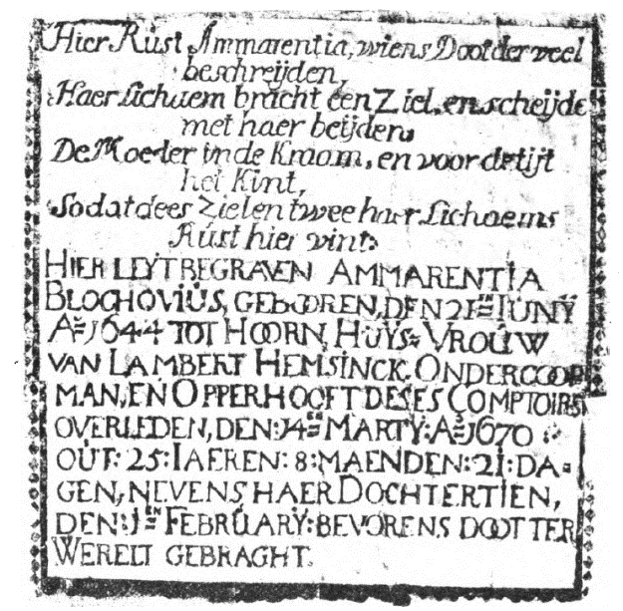 Hier Rúst Ammarentia, wiens Doot der veel
beschreijden,
Haer Lichaem bracht een Ziel, en scheijde
met haer beijden,
De Moeder in de Kraam, en voor de tijt
het Kint,
Sodat dees Zielen twee haer Lichaems
Rúst hier vint:
HIER LEYT BEGRAVEN AMMARENTIA
BLOCHOVIÚS, GEBOOREN, DEN 21EN IUNŸ
AO 1644 TOT HOORN, HÚYS=VROÚW
VAN LAMBERT HEMSINCK ONDERCOOP
MAN, EN OPPERHOOFT DESES COMPTOIRS
OVERLEDEN, DEN: 14EN MARTŸ: AO 1670
OÚT: 25: IAEREN: 8: MAENDEN: 21: DA=
GEN, NEVENS HAER DOCHTERTIEN,
DEN: 1EN FEBRÚARŸ: BEVORENS DOOT TER
WERELT GEBRAGHT.